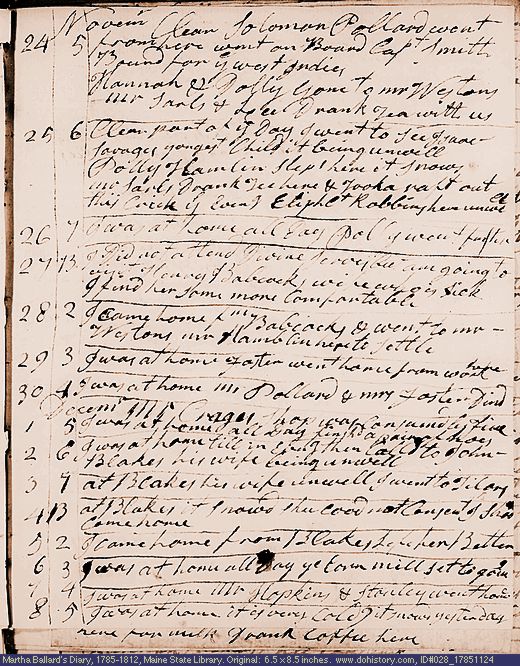 Novem
24 5 Clear Solomon Pollard went
from here went on Board Capt Smith
Bound for ye west Indies
Hannah & Dolly Gone to mr Westons
mr Savls & Drank Tea with us
25 6 Clear part of ye Day I went to See Isaac
Savages yongest Child it being unwell
Polly Hamlin Sleps here it snow
mr Savls Drank Tee here & Tooka raft out
this Crick ys Even Eliphet Robbins here
26 7 I was at home all Day Polly went from here
27 B I Did not attend Divine Servis am going to
Henry Babcock wife as she is Sick
I find her some more Comfortable
28 2 I came home fm Babcocks & went to mr
Westons mr Hamblin
29 3 I was at home Foster went home from work here
30 4 I was at home Mr Pollard & mrs Foster
Decem Mr Crages Shop was Consumd by Fire
1 5 I was at home all Day a pair of hoes
2 6 I was at home till Evng then Calld to John
Blakes his wife being unwell
3 7 at Blakes his wife unwell I went to
4 B at Blakes it Snowd She Cood not Consent I Shoud
come home
5 2 I came home from Blakes left her Better
6 3 I was at home all Day ye town mill Set to going
7 4 I was at home Mr Hopkins & Stanley went home
8 5 I was at home it is very Cold it snow yesterday
here for milk Drank Coffee here
Martha Ballard's Diary, 1785-1812, Maine State Library. Original: 6.5 x 8.5 inches. www.dohistory.com, ID#028_17851124